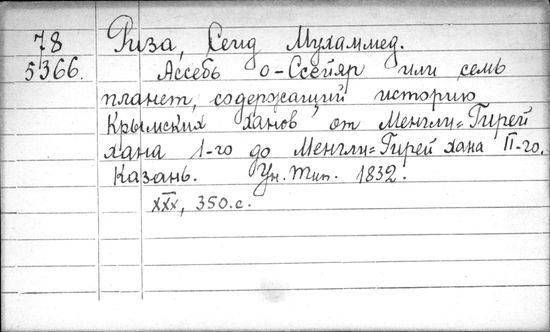 78 Риза, Сеид Мухаммед.
5366. Ассебъ о-Ссейяр или семь
планет, содержащий историю
Крымских ханов от Менгли=Гирей
хана 1-го до Менгли=Гирей хана II-го.
Казань. Ун. Тип. 1832.
XXX, 350.с.